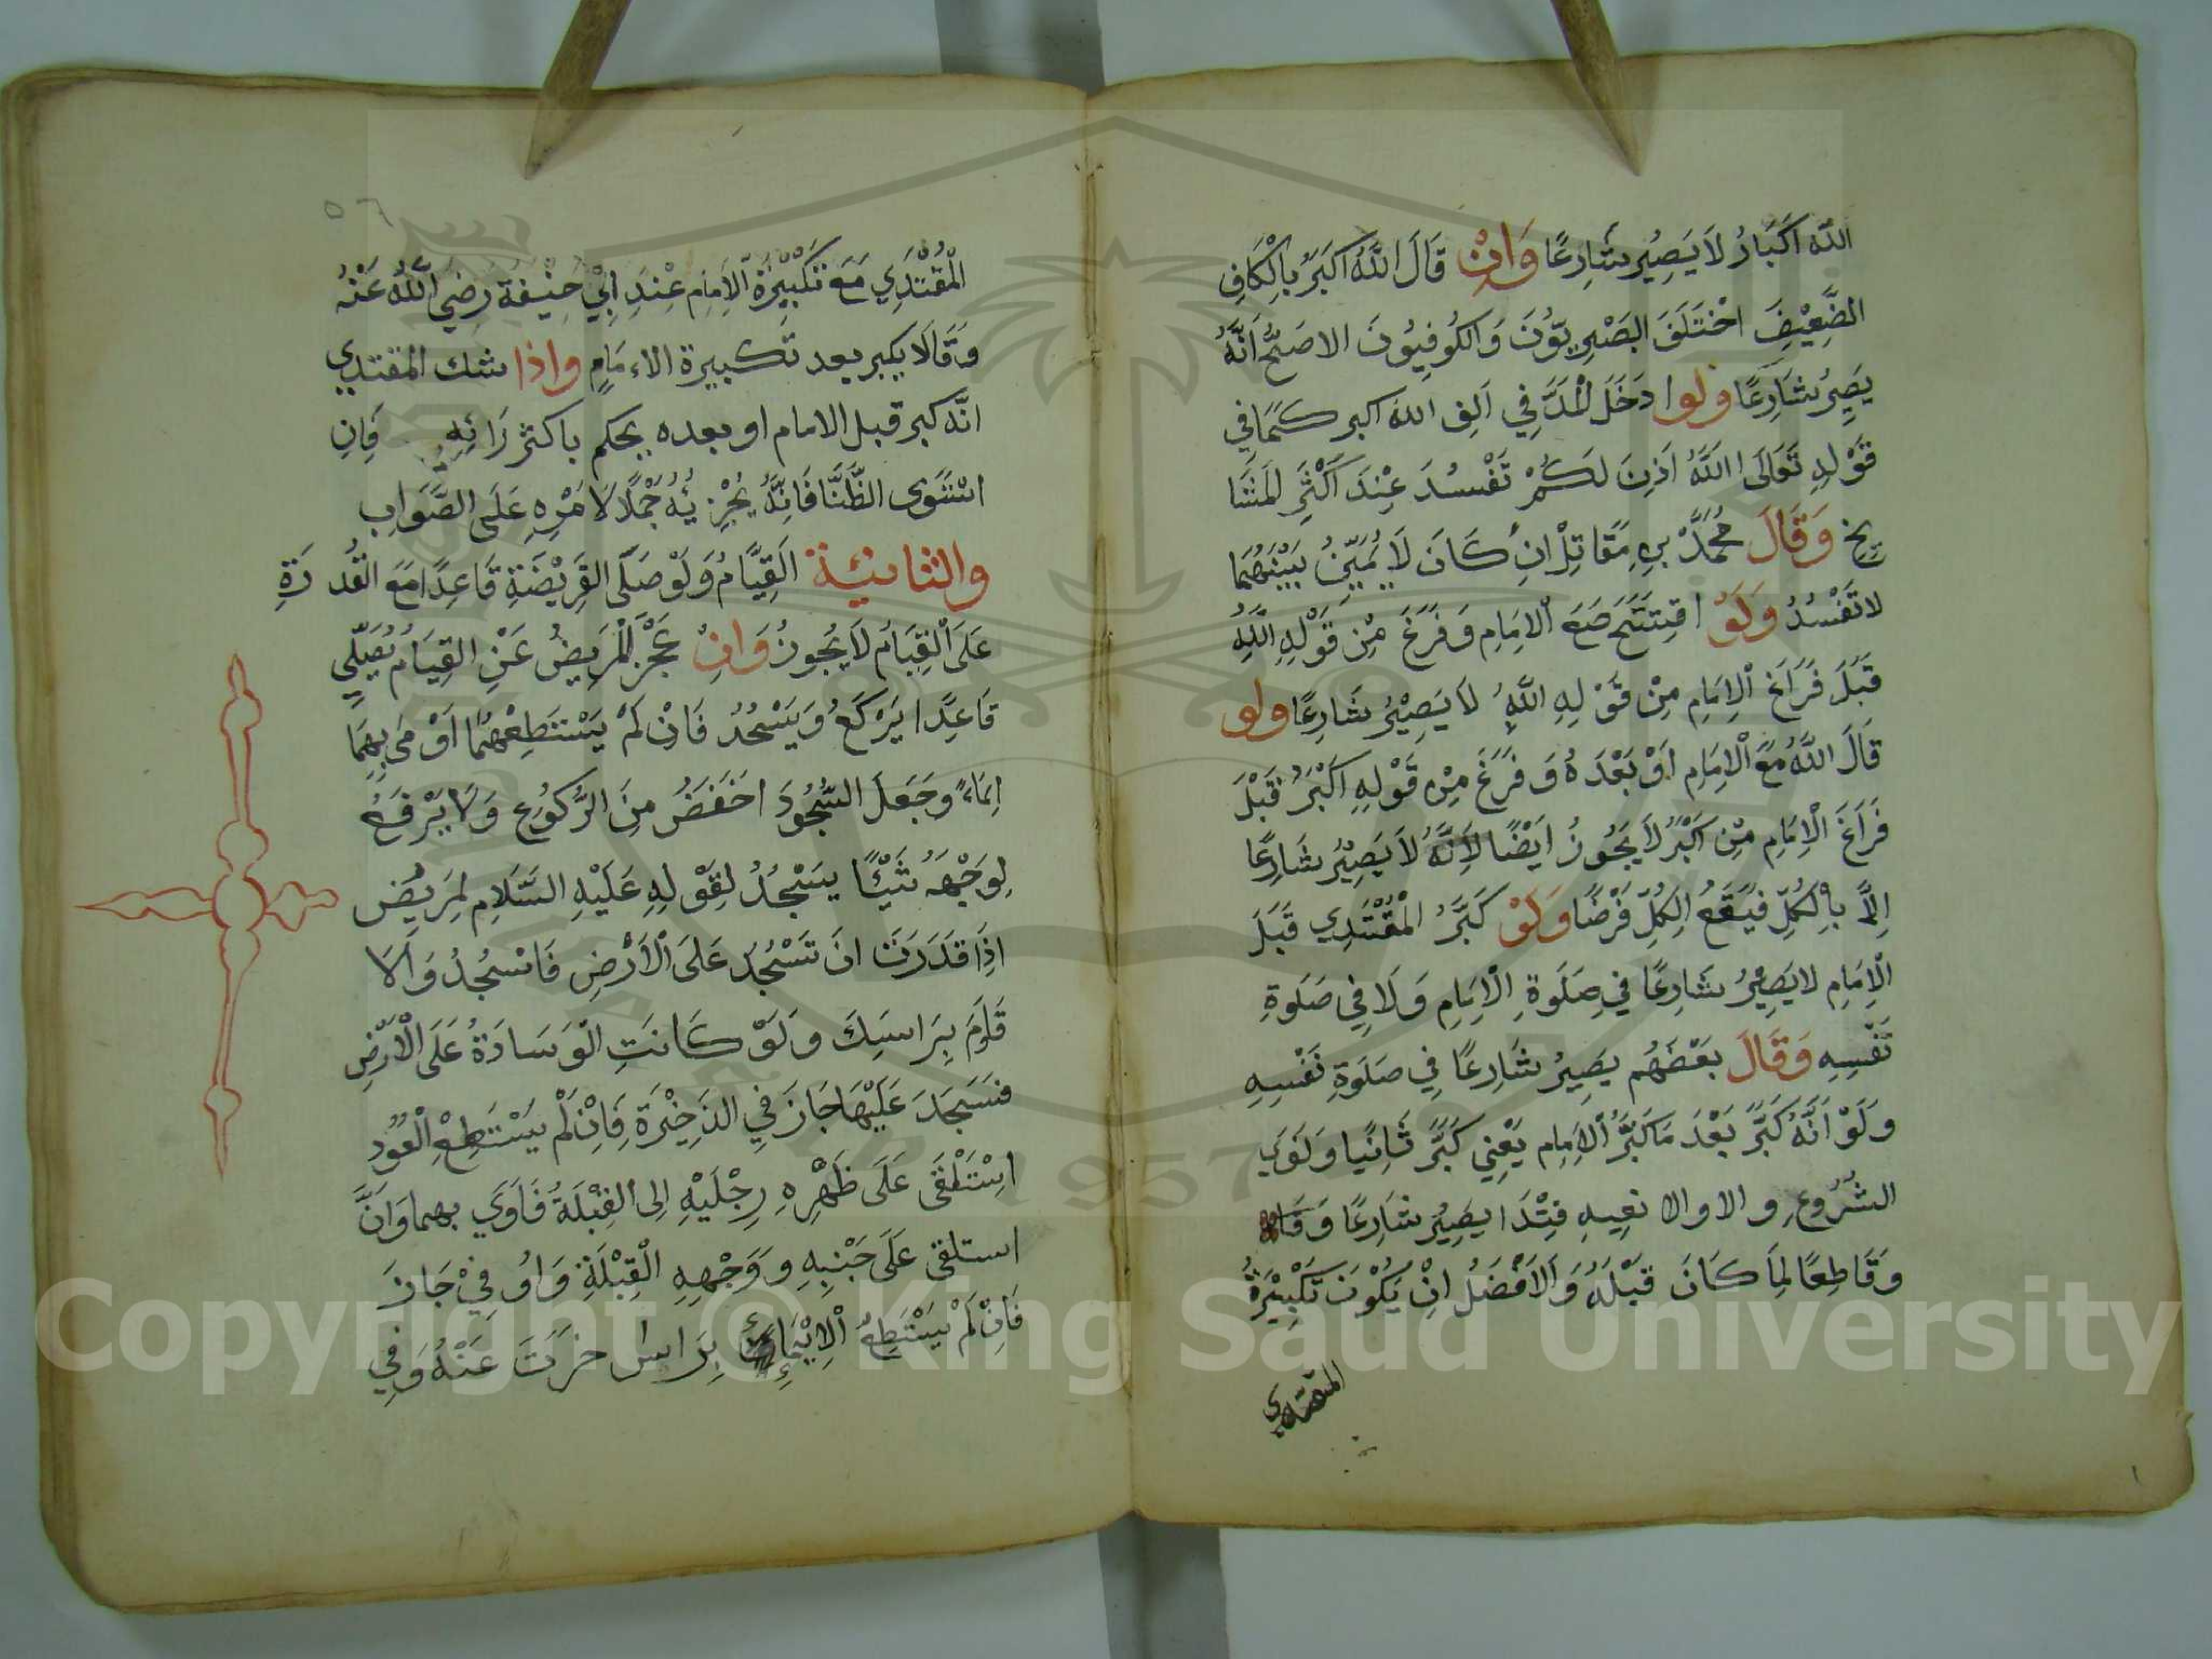 الله اكبار لا يصير شارعا وان قال الله اكبر بالكاف
الضعيف اختلف البصريون والكوفيون الاصح انه
يصير شارعا ولوا دخل المد في الف الله اكبر كما في
قوله تعالى االله اذن لكم تفسد عند اكثر المشا
يخ وقال محمد بن مقاتل ان كان لا يميز بينهما
لا تفسد ولو افتتح مع الامام وفرغ من قوله الله
قبل فراغ الامام من قوله الله لا يصير شارعا ولو
قال الله مع الامام او بعده وفرغ من قوله اكبر قبل
فراغ الامام من اكبر لا يجوز ايضا لانه لا يصير شارعا
الا بالكل فيقع الكل فرضا ولو كبر المقتدي قبل
الامام لا يصير شارعا في صلوة الامام ولا في صلوة
نفسه وقال بعضهم يصير شارعا في صلوة نفسه
ولو انه كبر بعد ما كبر الامام يعني كبر ثانيا ونوي
الشروع والا يصير شارعا
وقاطعا لما كان قبله والافضل ان يكون تكبيرة
المقتدي
٥٦
المقتدي مع تكبيرة الامام عند ابي حنيفة رضي الله عنه
وقالا يكبر بعد تكبيرة الامام واذا شك المقتدي
انه كبر قبل الامام او بعده يحكم باكثر رائه فان
استوى الظنا فانه يجزيه حملا لامره على الصواب
والثانية القيام ولو صلى الفريضة قاعدا مع القدرة
على القيام لا يجوز وان عجز المريض عن القيام يصلي
قاعدا يركع ويسجد فان لم يستطعهما اومى بهما
ايماء وجعل السجود اخفض من الركوع ولا يرفع
لوجهه شيئا يسجد لقوله عليه السلام لمريض
اذا قدرت ان تسجد على الارض فاسجد والا
فاوم براسك ولو كانت الوسادة على الارض
فسجد عليها جاز في الذخيرة فان لم يستطع القعود
استلقى على ظهره رجليه الى القبلة فاوي بهما وان
استلقى على جنبه ووجهه القبلة واوفي جاز
فان لم يستطع الايماء براس اخرت عنه وفي
Copyright © King Saud University
1957